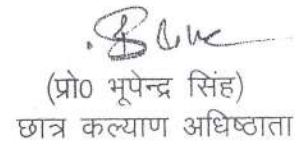 (प्रो0 भूपेन्द्र सिंह)
छात्र कल्याण अधिष्ठाता